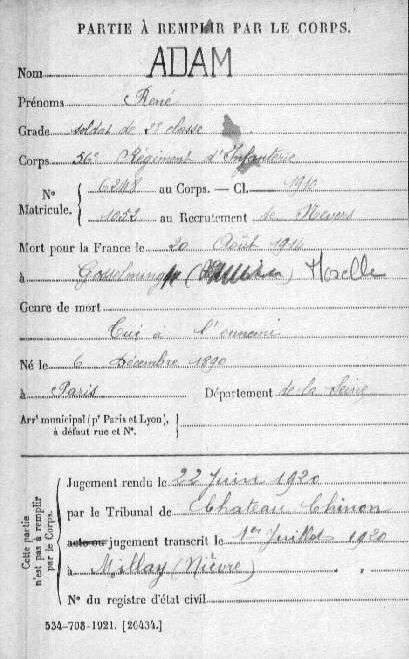 PARTIE À REMPLIR PAR LE CORPS.
Nom ADAM
Prénoms René
Grade soldat de 2e classe
Corps 56e Régiment d'Infanterie
N° Matricule. { 6248 au Corps. — Cl. 1910
1052 au Recrutement de Nevers
Mort pour la France le 20 Août 1914
à Gosselming ( ) Moselle
Genre de mort
Tué à l'ennemi
Né le 6 Décembre 1890
à Paris Département de la Seine
Arrt municipal (pr Paris et Lyon),
à défaut rue et N°.
Cette partie n'est pas à remplir par le Corps.
Jugement rendu le 22 Juin 1920
par le Tribunal de Chateau Chinon
acte ou jugement transcrit le 1er Juillet 1920
à Millay (Nièvre)
N° du registre d'état civil
534-708-1921. [26434.]